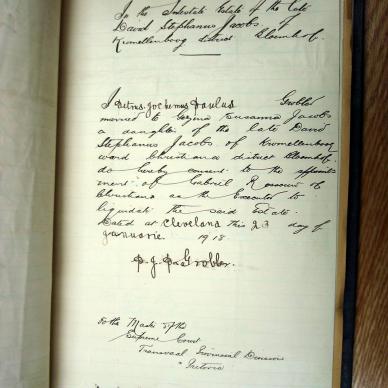 In the Intestate Estate of the late
David Stephanus Jacobs, of
Kromellenboog district Bloemhof.
I Petrus Jochemus Paulus Grobler
married to Susanna Jacobs
a daughter of the late David
Stephanus Jacobs of Kromellenboog
ward Christiana district Bloemhof
do hereby consent to the appoint
ment of Gabriel R of
Christiana as the Executor to
liquidate the said Estate.
Dated at Cleveland this 23 day of
Januarie 1918.
P. J. P. Grobler.
To the Master of the
Supreme Court
Transvaal Provincial Division
Pretoria